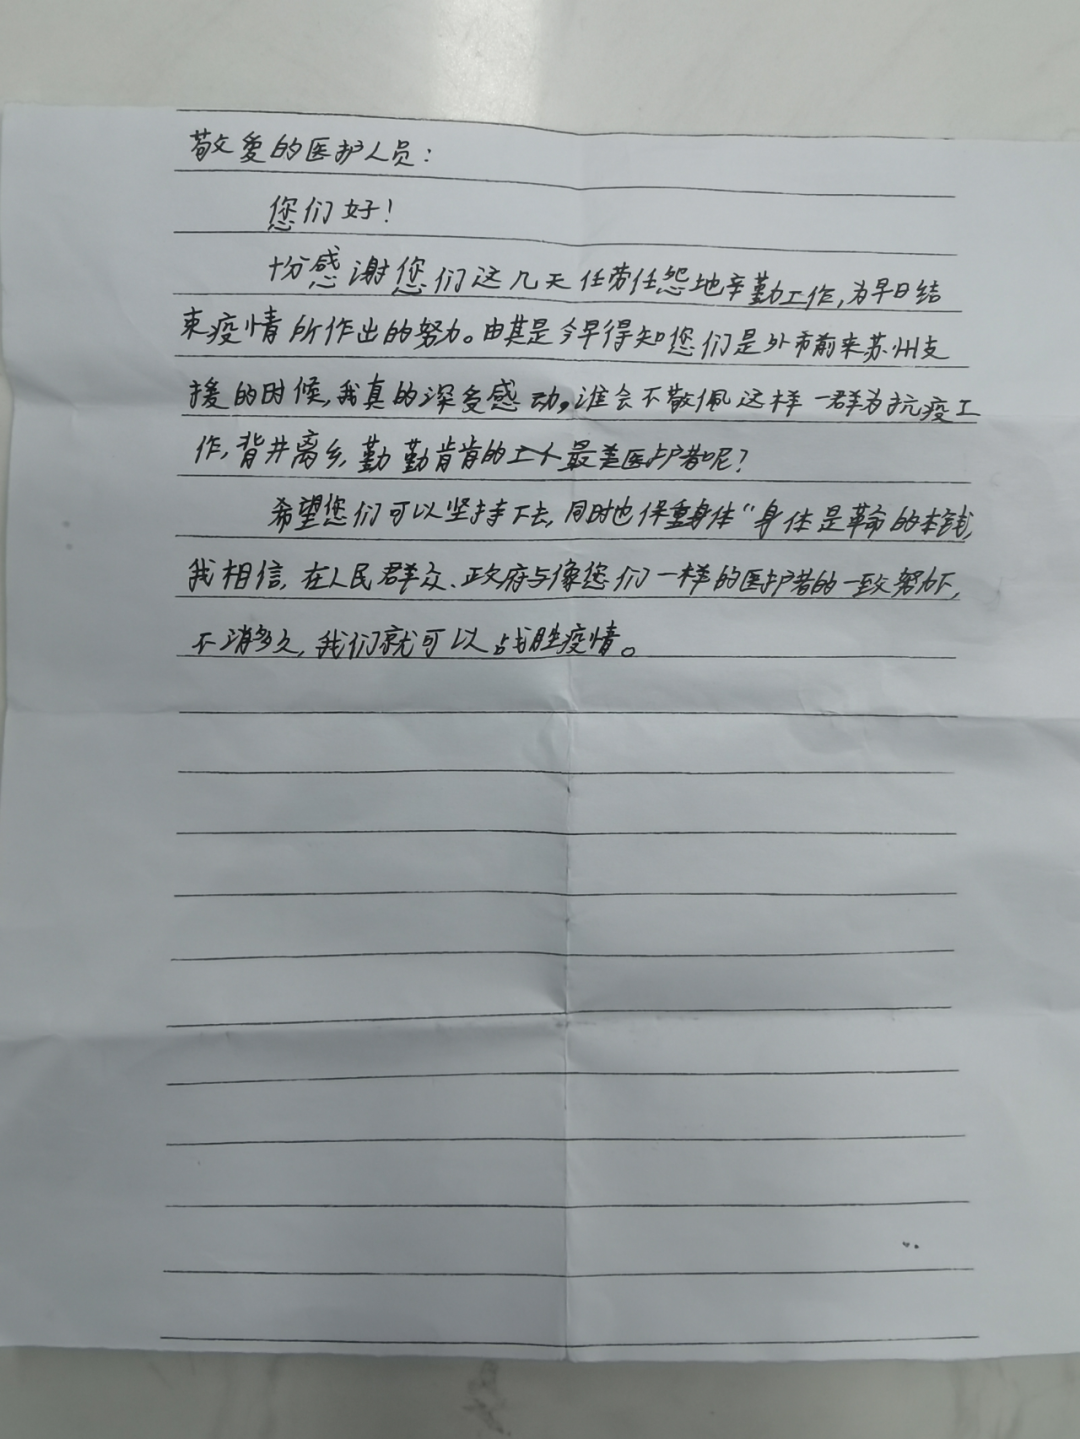 敬爱的医护人员：
您们好！
十分感谢您们这几天任劳任怨地辛勤工作，为早日结
束疫情所作出的努力。由其是今早得知您们是外市前来苏州支
援的时候，我真的深受感动，谁会不敬佩这样一群为抗疫工
作，背井离乡，勤勤肯肯的最美医护者呢？
希望您们可以坚持下去，同时也保重身体“身体是革命的本钱，
我相信，在人民群众、政府与像您们一样的医护者的一致努力下，
不消多久，我们就可以战胜疫情。